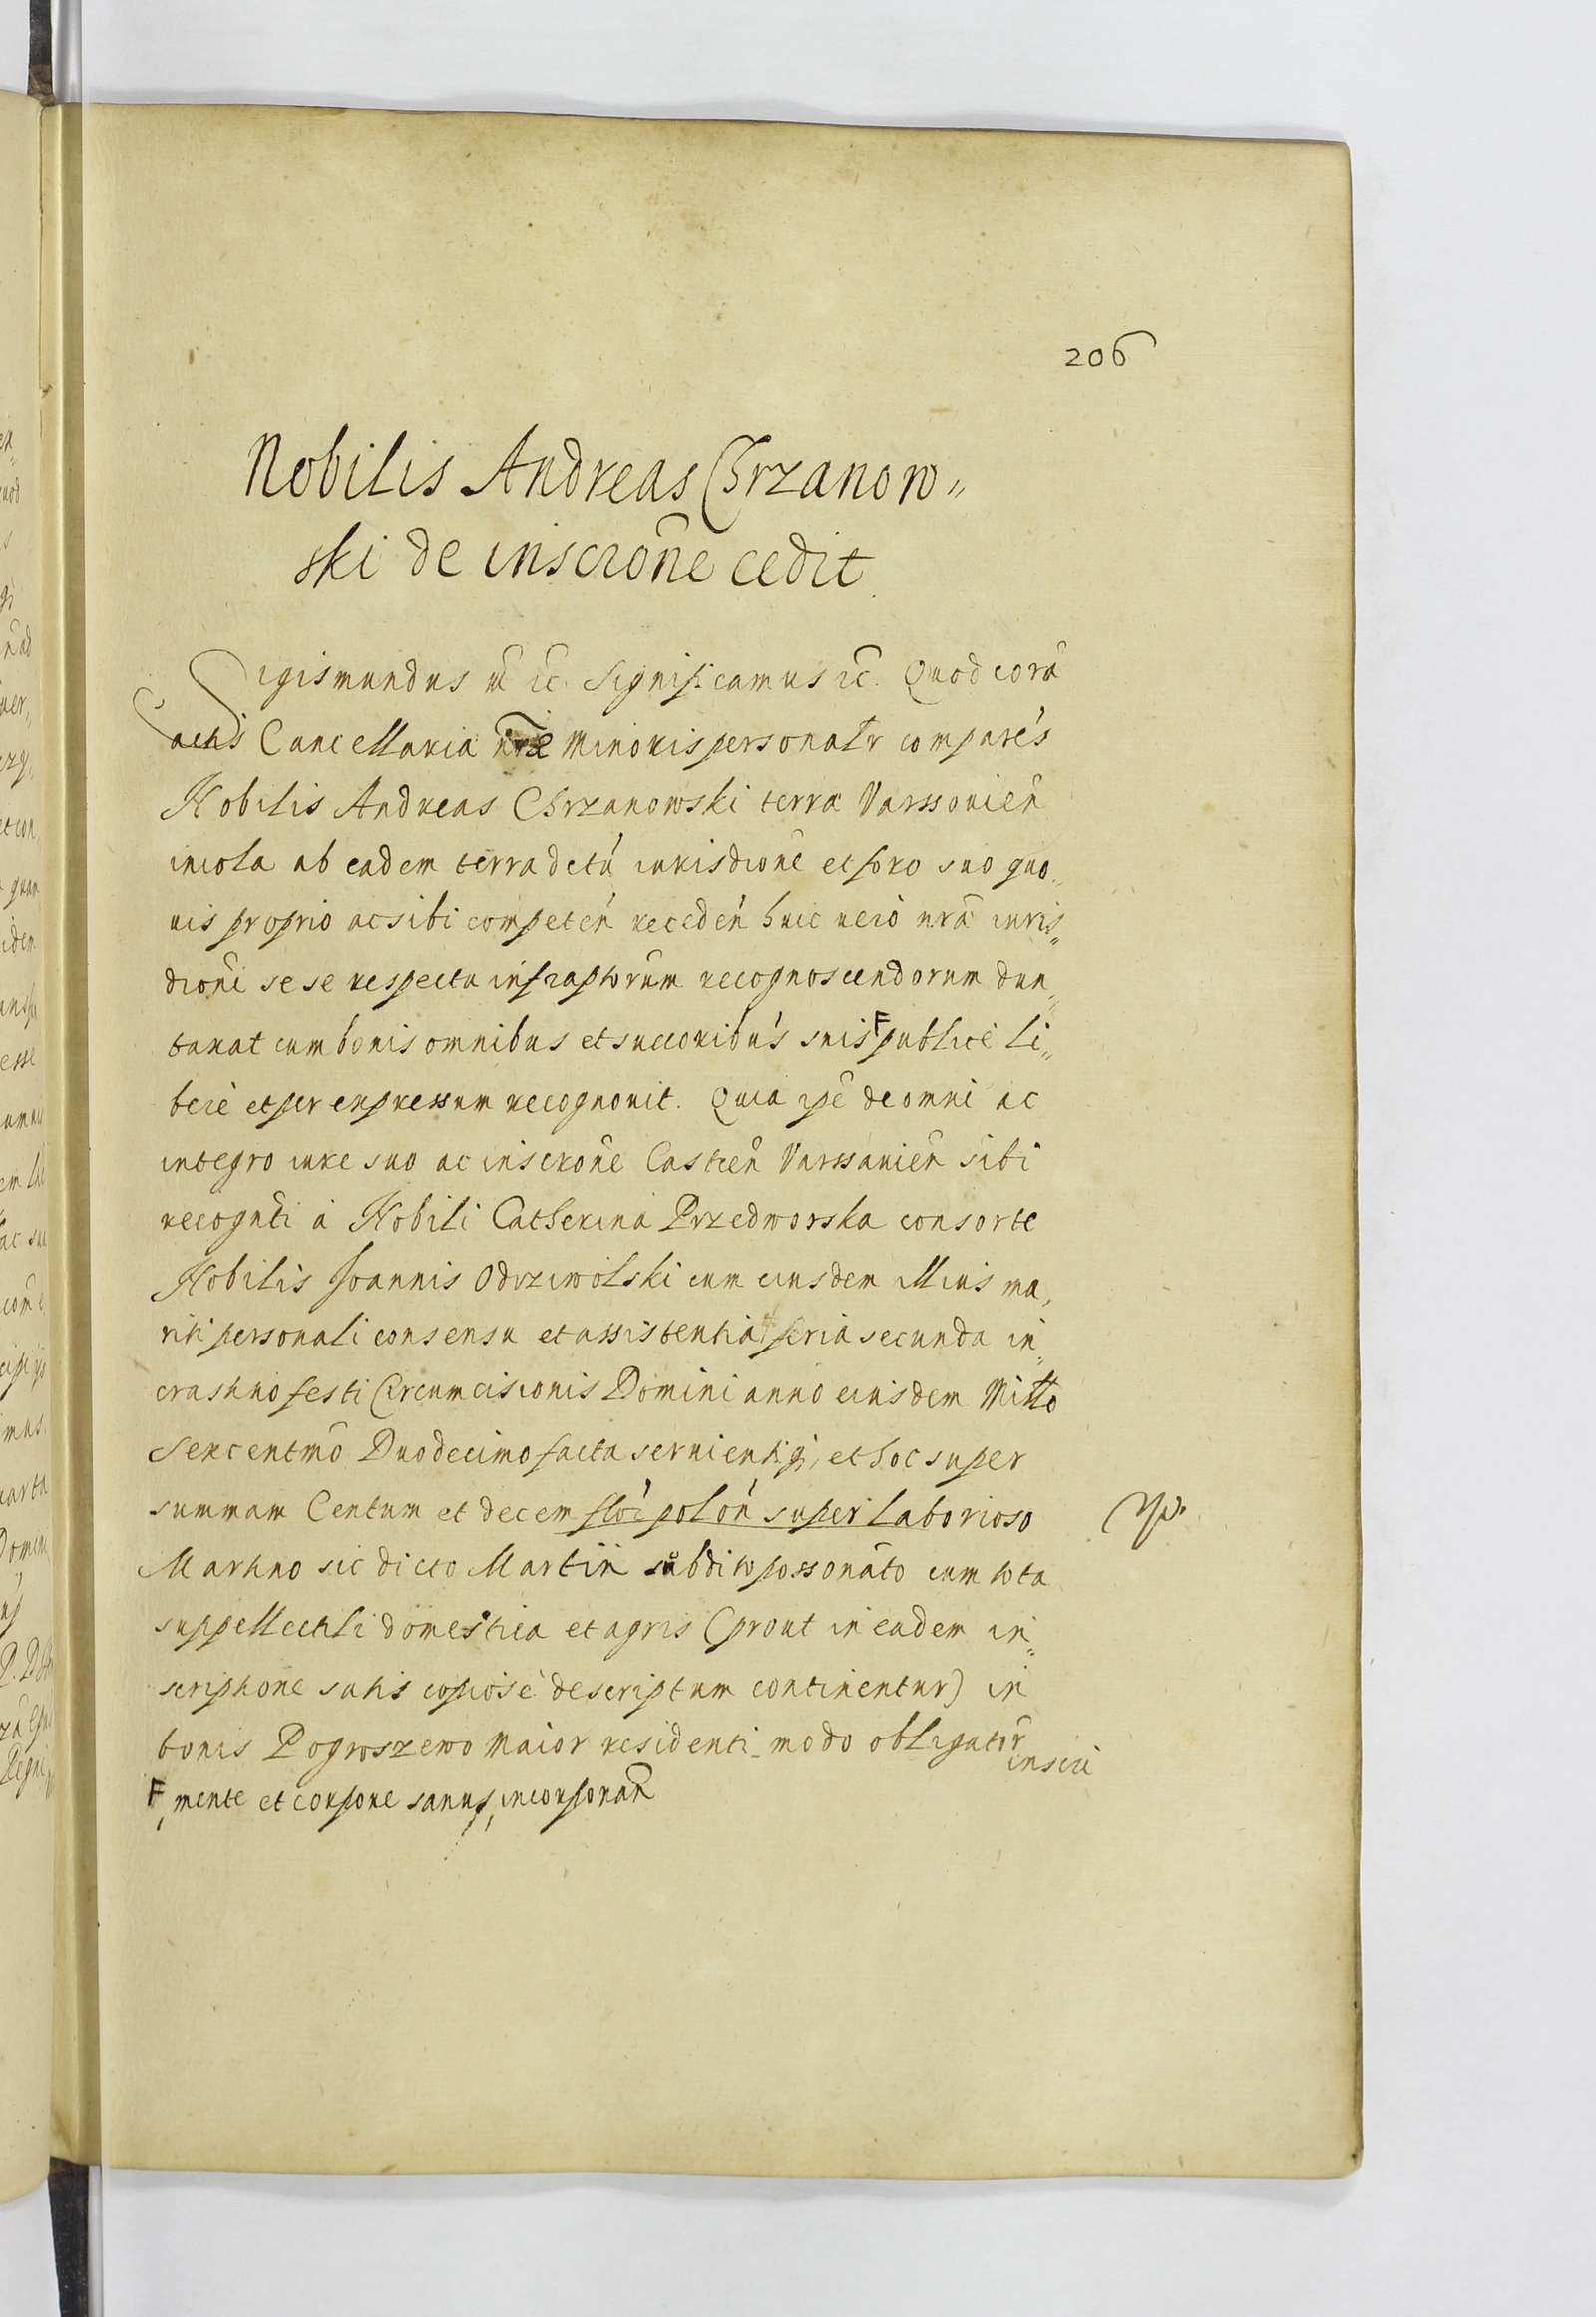 206
Nobilis Andreas Chrzanow„
ski de inscrõne cedit
Sigismundus &c̃ &c̃. Significamus &c̃. Quod corã
actis Cancellariæ nr̃æ Minoris personalr comparés
Nobilis Andreas Chrzanowski terræ Varssovień
incola ab eadem terra dictá iurisdione et foro suo quo„
uis proprio ac sibi competeń receden huic vero nrã iuris„
dioni se se respectu infraptorum recognoscendorum dun„
taxat cum bonis omnibus et succoribus suis F publicè li„
berè et per expressum recognouit. Quia ipẽ de omni ac
integro iure suo ac inscrõne Castreń Varssauień sibi
recognti à Nobili Catherina Przedworska consorte
Nobilis Joannis Odrziwolski cum eiusdem illius ma„
riti personali consensu et assistentia feria secunda in„
crastino festi Circumcisionis Domini anno eiusdem Mitto
Sexcentmo Duodecimo facta seruientiqȝ, et hoc super
summam Centum et decem flor polon super laborioso
Martino sic dicto Martin subdito possonato cum tota
suppellectili domestica et agris (prout in eadem in„
scriptione satis copiosè descriptum continentur) in
bonis Pogroszewo Maior residenti modo obligatор
inscri
F, mente et corpore sanus, incorporań